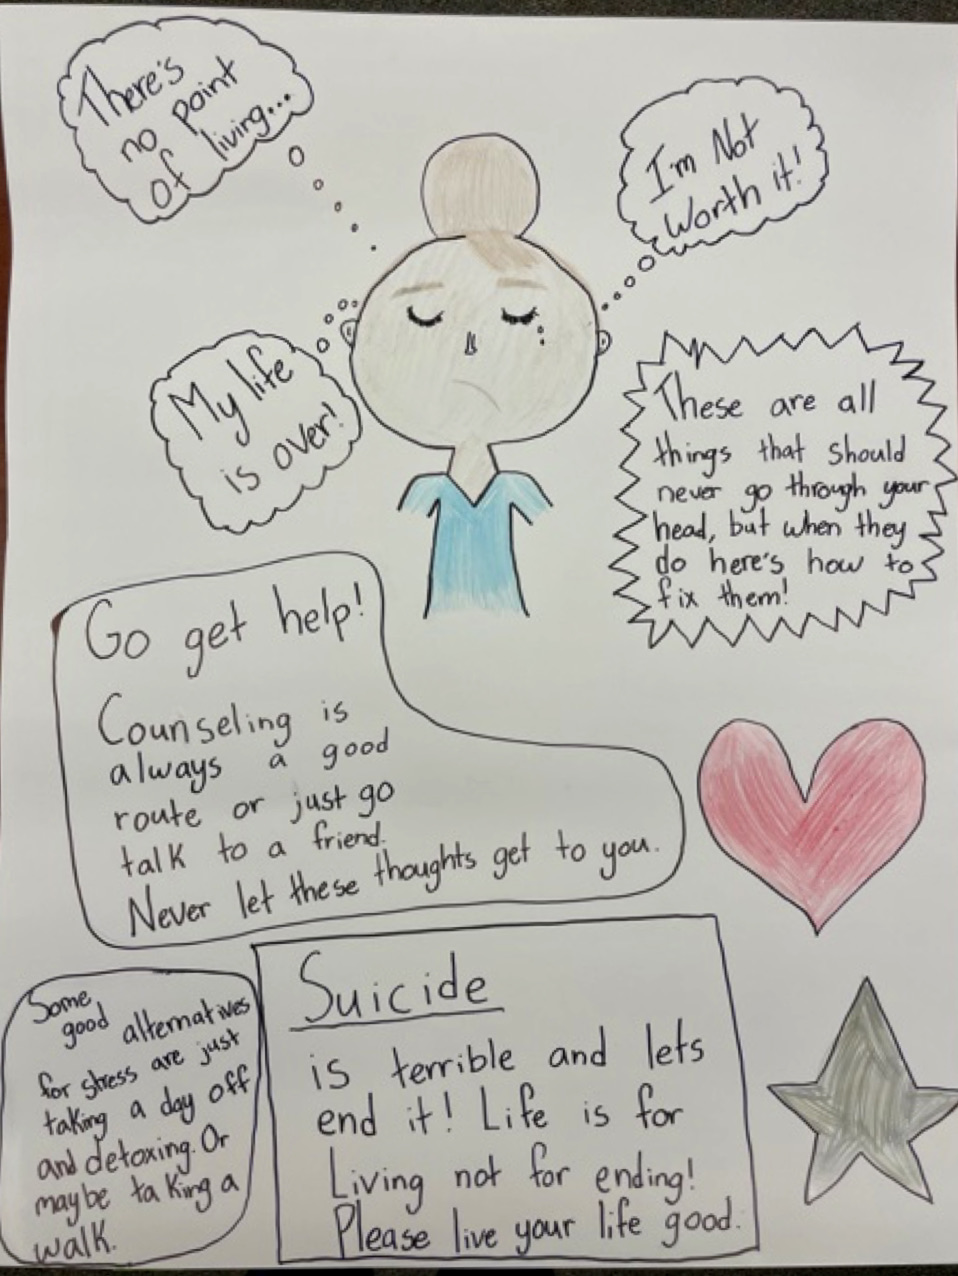 There's
no point
of living...
I'm Not
Worth it!
My life
is over!
These are all
things that should
never go through your
head, but when they
do here's how to
fix them!
Go get help!
Counseling is
always a good
route or just go
talk to a friend.
Never let these thoughts get to you.
Some
good alternatives
for stress are just
taking a day off
and detoxing. Or
maybe taking a
walk.
Suicide
is terrible and lets
end it! Life is for
Living not for ending!
Please live your life good.